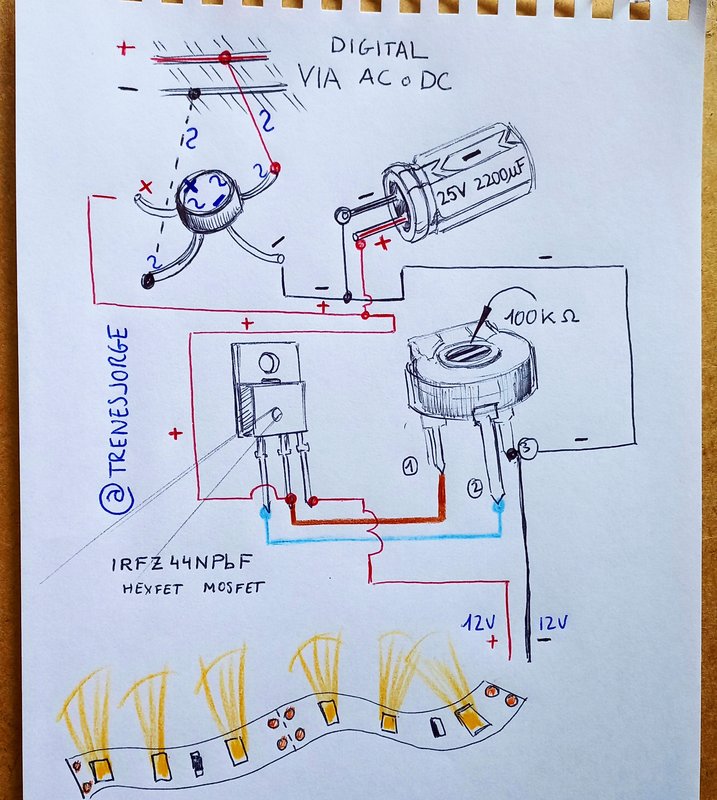 DIGITAL
VIA AC o DC
+
-
2
2
x
2
x 2
2 -
2
-
-
+
-
25V 2200µF
-
-
+
+
100KΩ
@TRENESJORGE
+
1
2
3
-
IRFZ44NPbF
HEXFET MOSFET
12V
+
12V
-